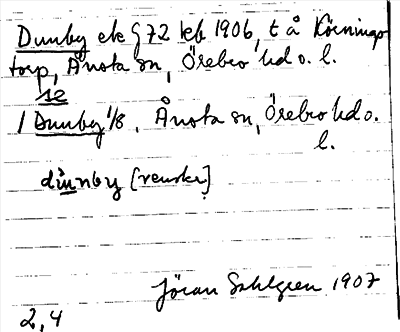 Dunby ek § 72 keb 1906, t å Körnings
torp, Ånsta sn, Örebro hd o. l.
se
/ Dunby 1/8, Ånsta sn, Örebro hd o.
l.
dùnby [renskr.]
Jöran Sahlgren 1907
2,4